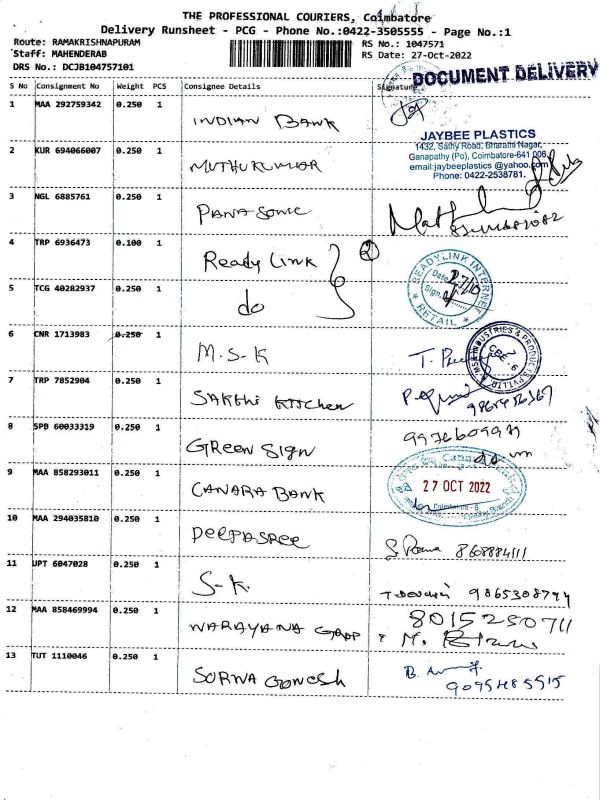 THE PROFESSIONAL COURIERS, Coimbatore
Delivery Runsheet - PCG - Phone No.:0422-3505555 - Page No.:1
Route: RAMAKRISHNAPURAM
RS No.: 1047571
Staff: MAHENDERAB
RS Date: 27-Oct-2022
DRS No.: DCJB104757101
DOCUMENT DELIVERY
S No Consignment No Weight PCS Consignee Details Signature
1 MAA 292759342 0.250 1 INDIAN BANK
JAYBEE PLASTICS
1432, Sathy Road, Bharathi Nagar,
Ganapathy (Po), Coimbatore-641 006
email:jaybeeplastics @yahoo.com
Phone: 0422-2538781.
2 KUR 694066007 0.250 1 MUTHUKUMAR
3 NGL 6885761 0.250 1 PANASONIC
4 TRP 6936473 0.100 1 Ready Link 2
READYLINK INTERNET
Date 27/10
Sign
* RETAIL *
5 TCG 40282937 0.250 1 do
6 CNR 1713983 0.250 1 M.S.K
CBE-6
7 TRP 7852904 0.250 1 SAKTHI KITCHEN
8 SPB 60033319 0.250 1 GREEN SIGN
9 MAA 858293011 0.250 1 CANARA BANK
27 OCT 2022
Coimbatore - 6
10 MAA 294035810 0.250 1 DEEPASREE
8608884111
11 JPT 6047028 0.250 1 S-K.
9865308794
12 MAA 858469994 0.250 1 NARAYANA
8015250711
13 TUT 1110046 0.250 1 SORNA GANESH
9095485515